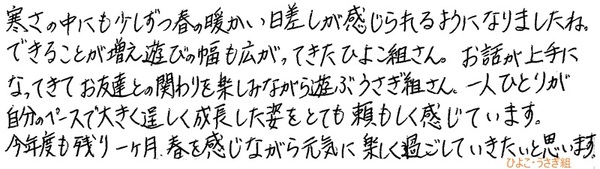 寒さの中にも少しずつ春の暖かい日差しが感じられるようになりましたね。
できることが増え遊びの幅も広がってきたひよこ組さん。お話が上手に
なってきてお友達との関わりを楽しみながら遊ぶうさぎ組さん。一人ひとりが
自分のペースで大きく逞しく成長した姿をとても頼もしく感じています。
今年度も残り一ヶ月、春を感じながら元気に楽しく過ごしていきたいと思います。
ひよこ・うさぎ組